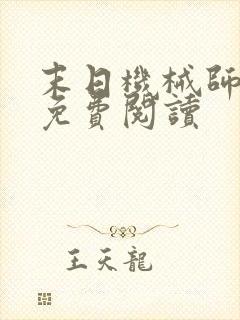 末日機械師
免費閱讀
王天龍